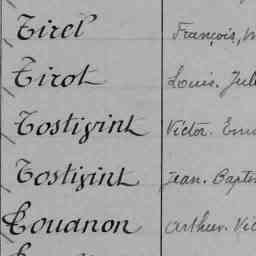 Tirel François,
Tirot Louis. Jul
Tostivint Victor. Em
Tostivint Jean. Bapti
Touanon Arthur. Vic